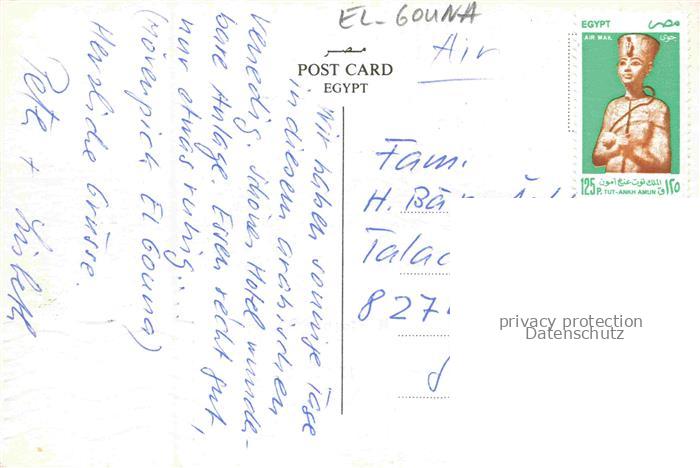 EL-GOUNA
مصر
POST CARD
EGYPT
Air
EGYPT مصر
AIR MAIL جوى
الملك توت عنخ آمون
125 P. TUT-ANKH AMUN ١٢٥
Wir haben sonnige Tage
in diesem arabischen
Venedig. Schönes Hotel, wunder-
bare Anlage. Essen recht gut,
nur etwas ruhig...
(Mövenpick El Gouna)
Herzliche Grüsse.
Peter +
Fam.
H. Bä
Talac
827
privacy protection
Datenschutz